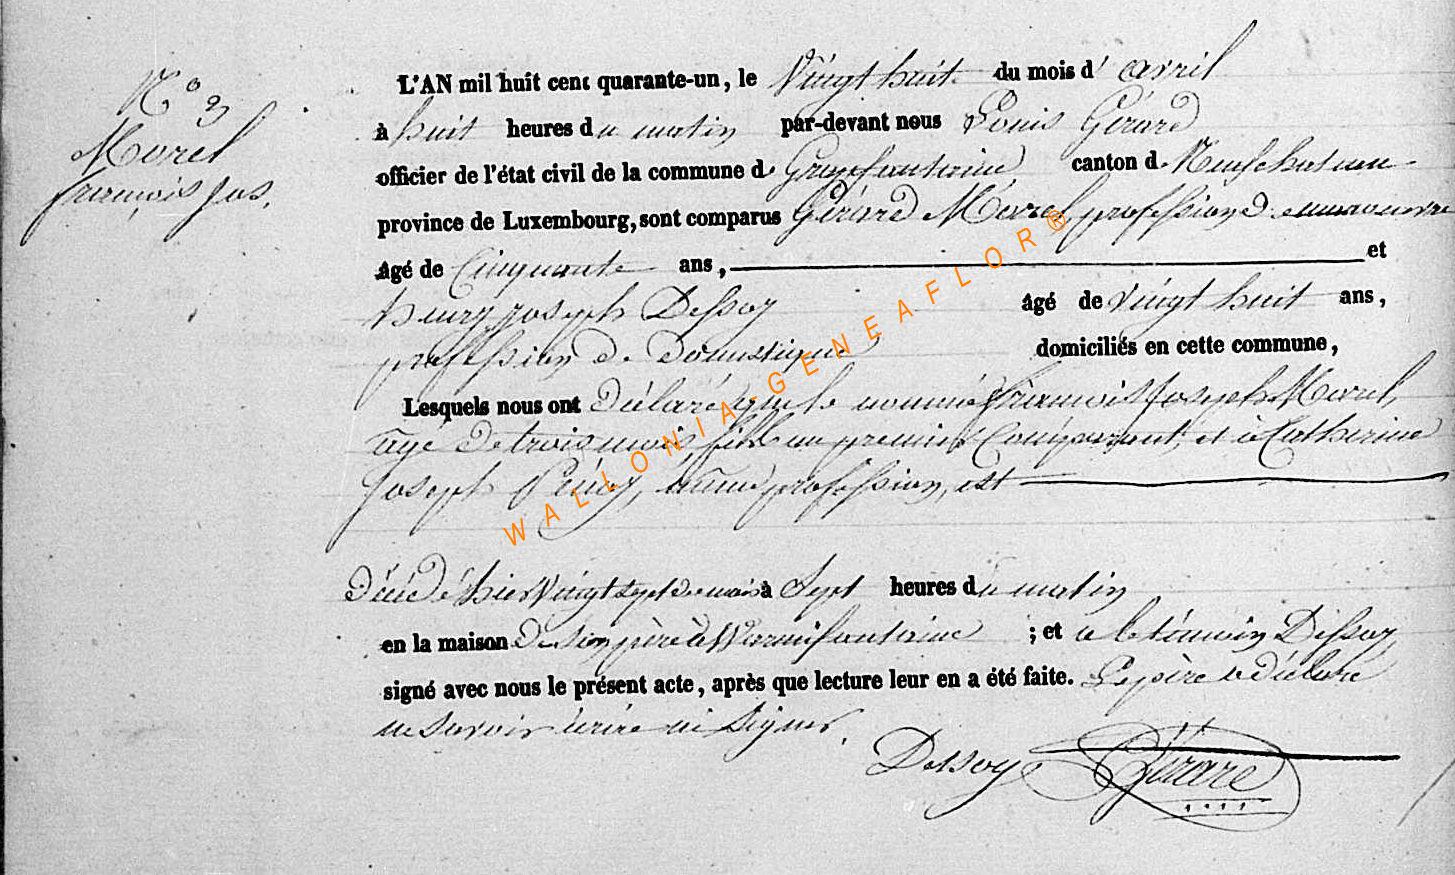 N° 9
Morel
françois Jos.
L'AN mil huit cent quarante-un, le Vingt huit du mois d'avril
à huit heures du matin par-devant nous Louis Gérard
officier de l'état civil de la commune de Grapfontaine canton de Neufchateau
province de Luxembourg, sont comparus Gérard Morel profession de manoeuvre
âgé de Cinquante ans, et
henry joseph Dessoy âgé de Vingt huit ans,
profession de Domestique domiciliés en cette commune,
Lesquels nous ont déclaré que le nommé françois Joseph Morel,
agé de trois mois, fils au premier Comparant, et à Catherine
joseph même profession, est
Décédé hier Vingt sept de mois à Sept heures du matin
en la maison de son père à Warmifontaine ; et a le témoin Dessoy
signé avec nous le présent acte, après que lecture leur en a été faite. Le père a déclaré
ne savoir écrire ni signer.
Dessoy Gérard
WALLONIA-GENEAFLOR®